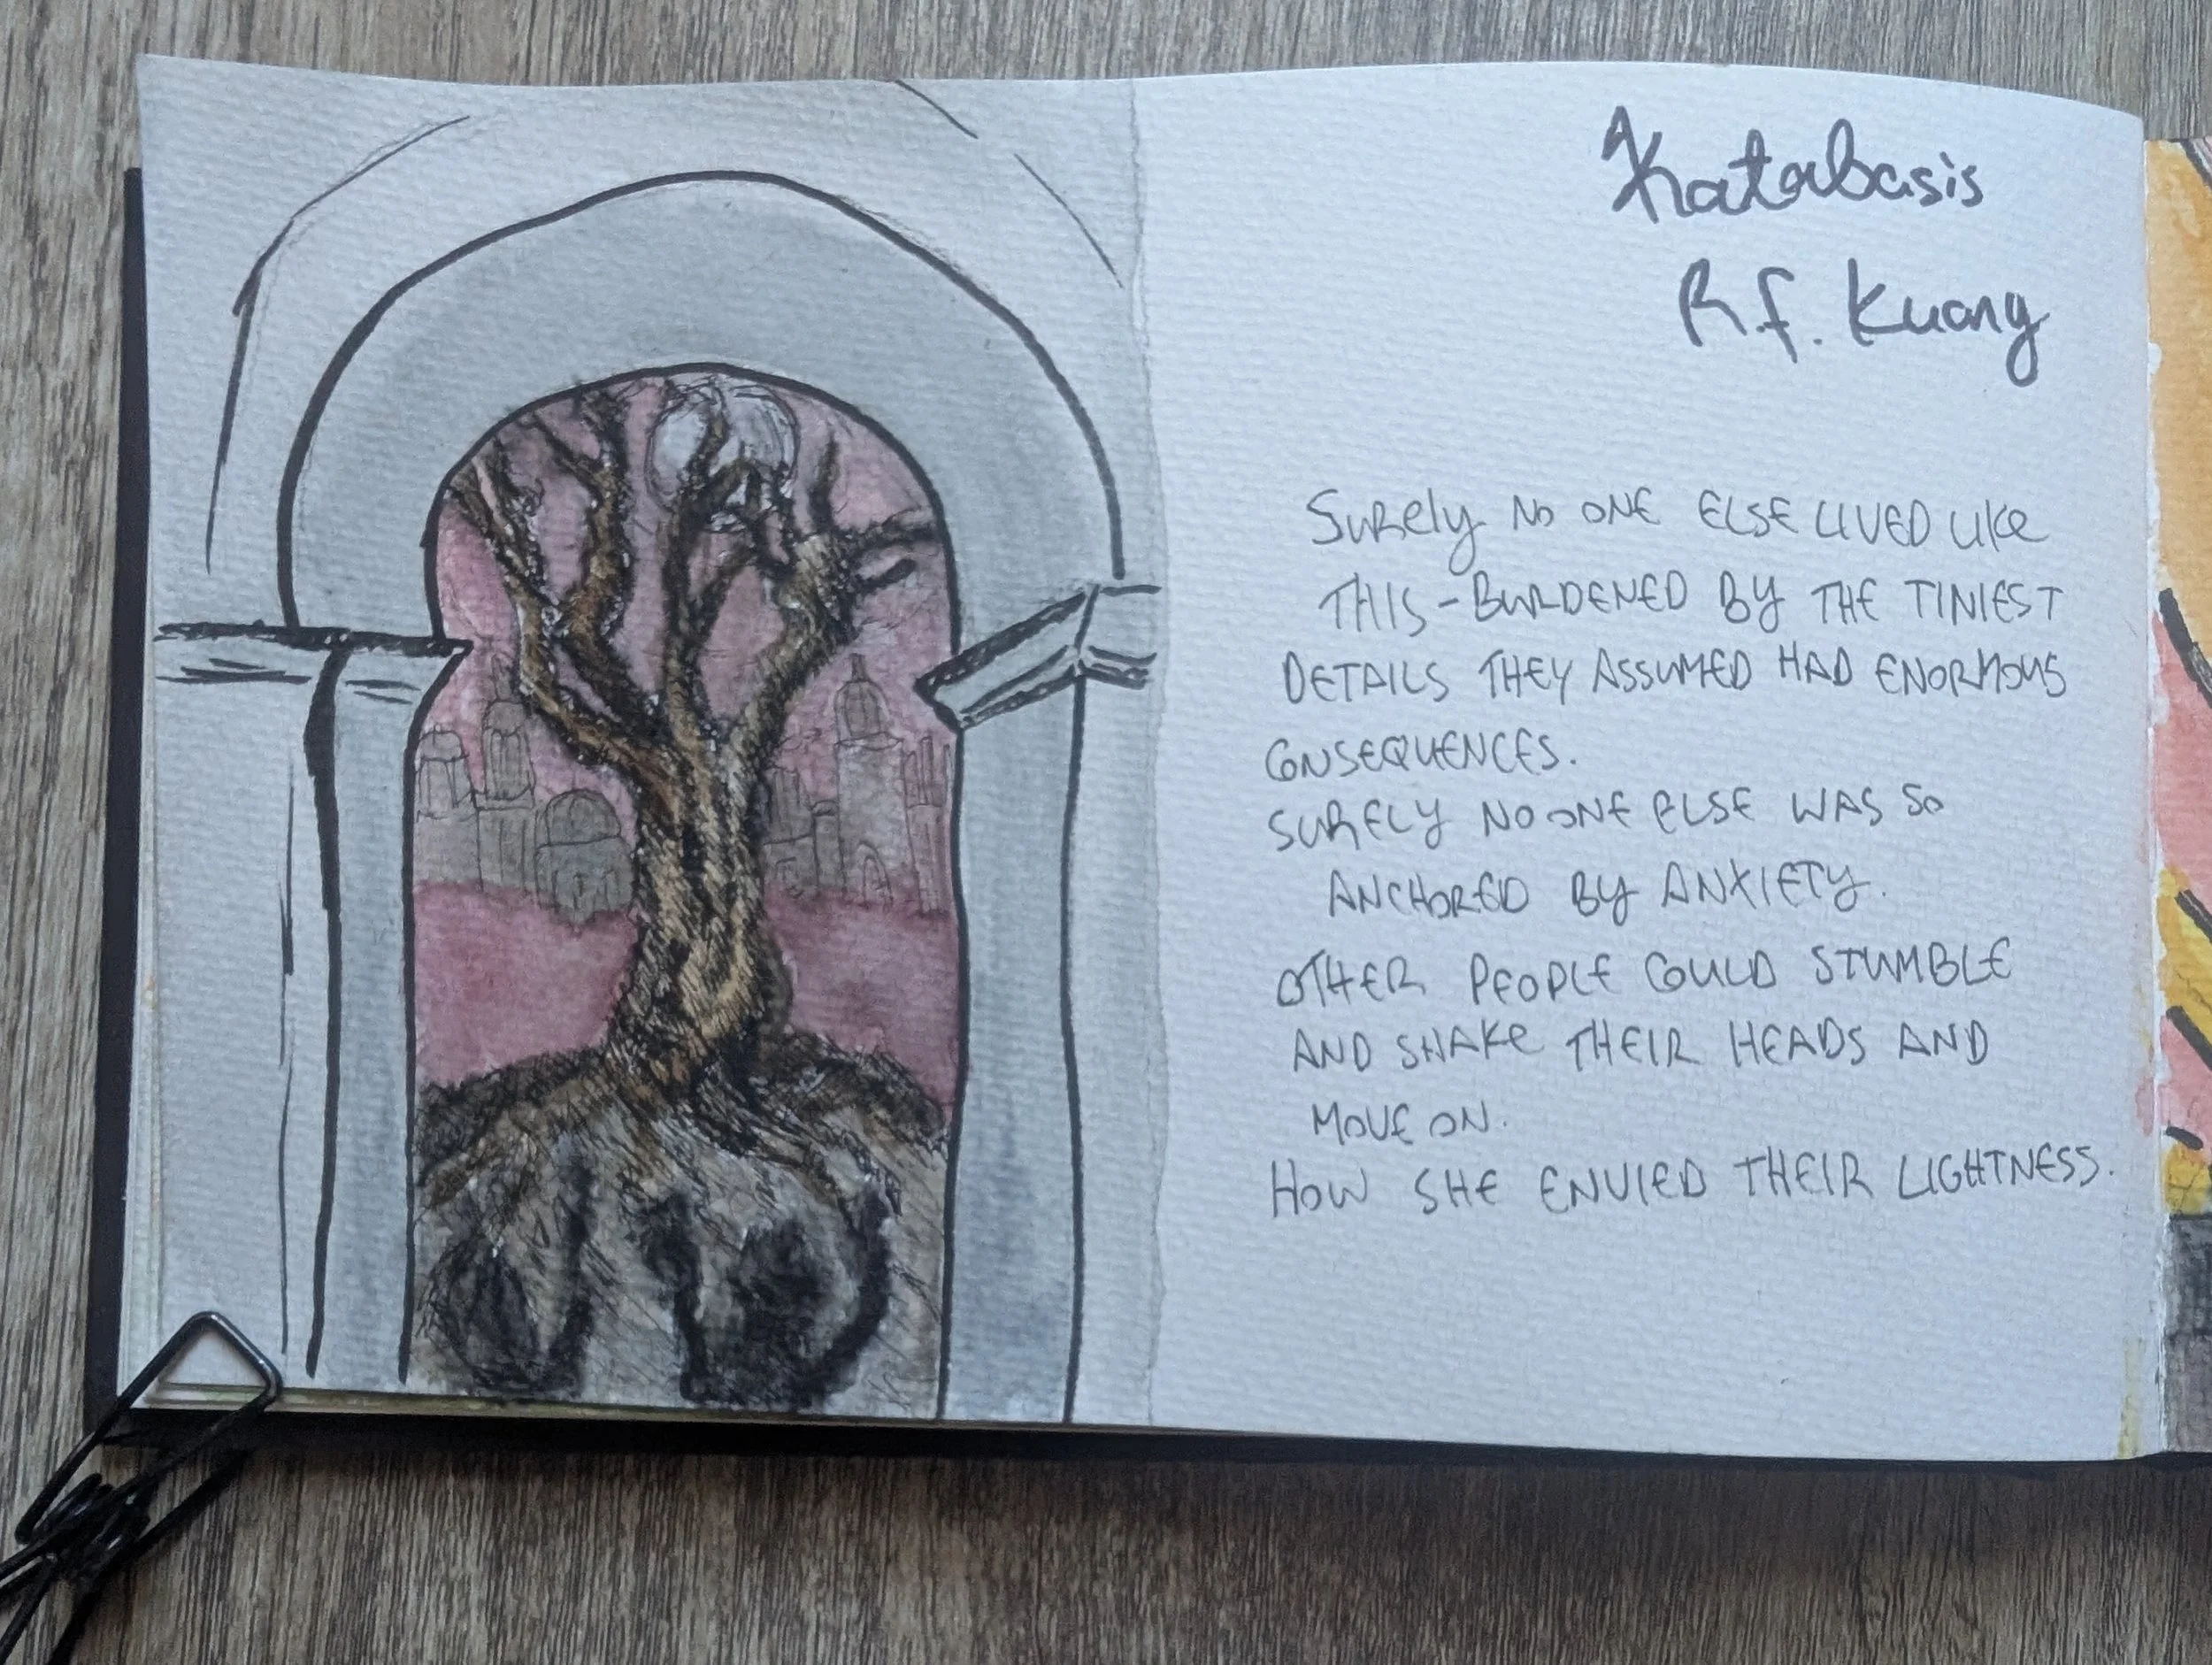 Katabasis
R.f. Kuang
SURELY NO ONE ELSE LIVED LIKE
THIS - BURDENED BY THE TINIEST
DETAILS THEY ASSUMED HAD ENORMOUS
CONSEQUENCES.
SURELY NO ONE ELSE WAS SO
ANCHORED BY ANXIETY.
OTHER PEOPLE COULD STUMBLE
AND SHAKE THEIR HEADS AND
MOVE ON.
HOW SHE ENVIED THEIR LIGHTNESS.